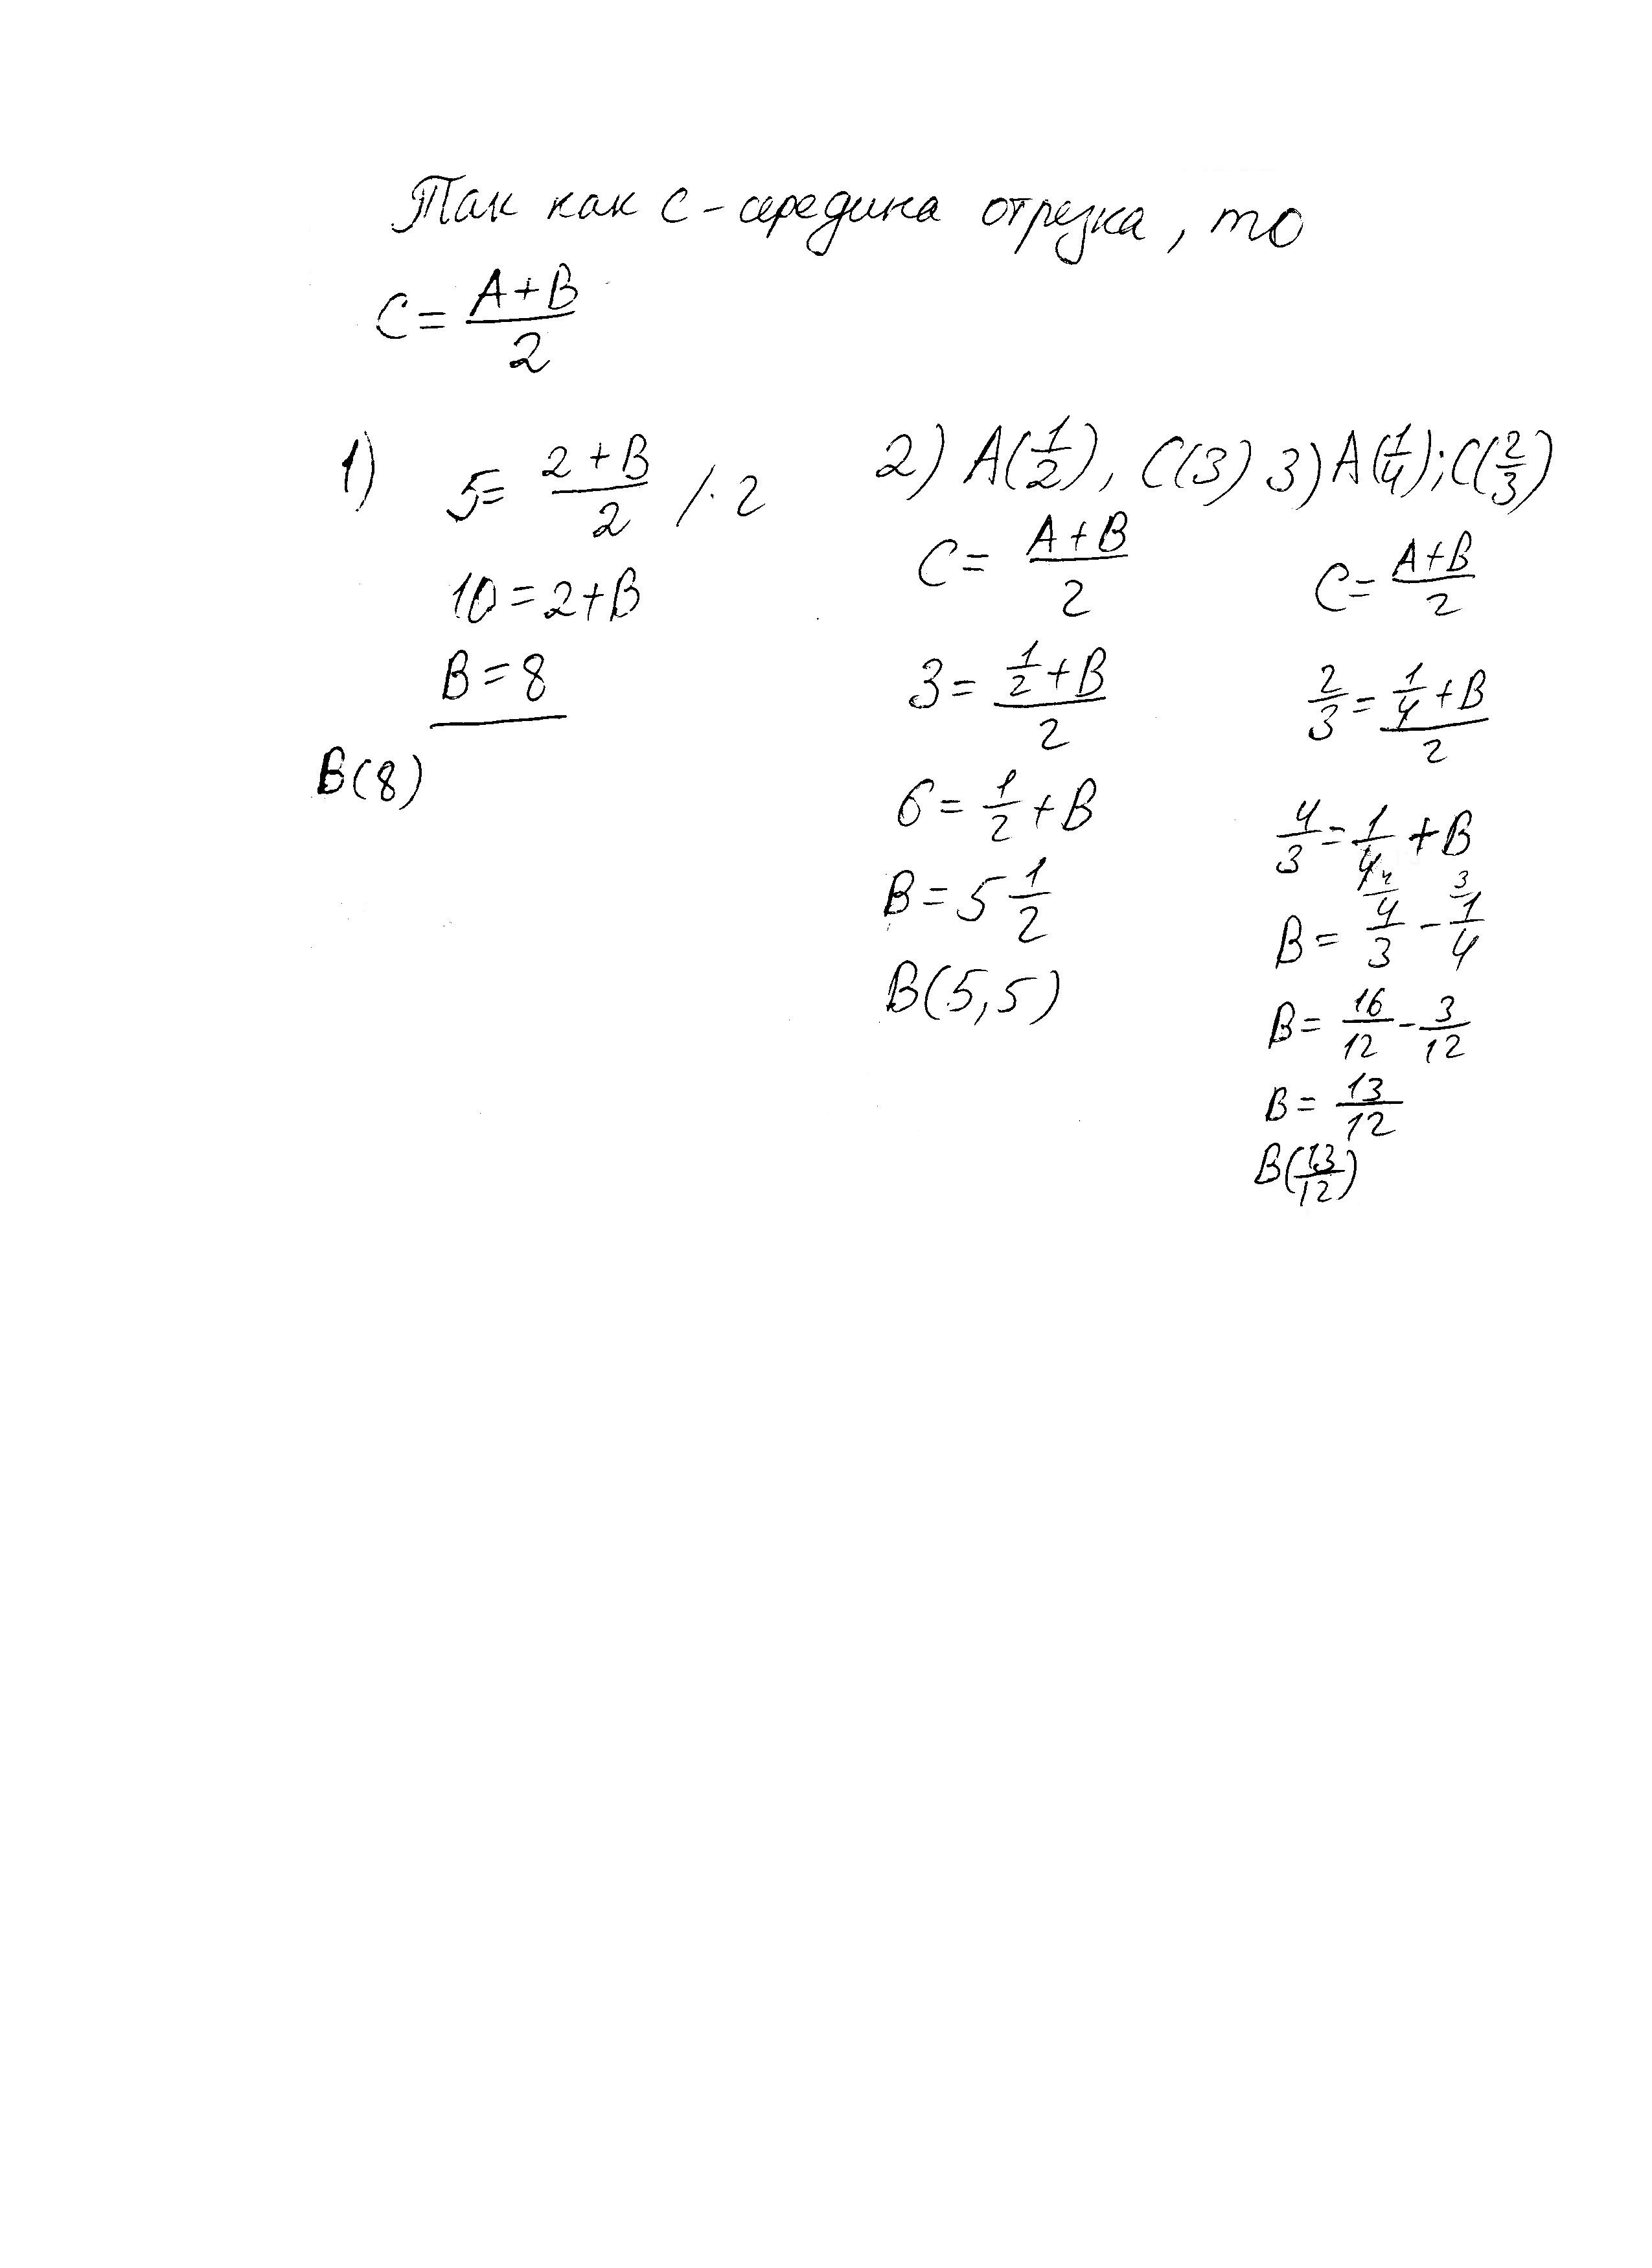 Так как С - середина отрезка, то
C = (A+B)/2
1) 5 = (2+B)/2 /·2
10 = 2+B
B = 8
B(8)
2) A(1/2), C(3)
C = (A+B)/2
3 = (1/2+B)/2
6 = 1/2+B
B = 5 1/2
B(5,5)
3) A(1/4); C(2/3)
C = (A+B)/2
2/3 = (1/4+B)/2
4/3 = 1/4 + B
B = 4/3 - 1/4
B = 16/12 - 3/12
B = 13/12
B(13/12)